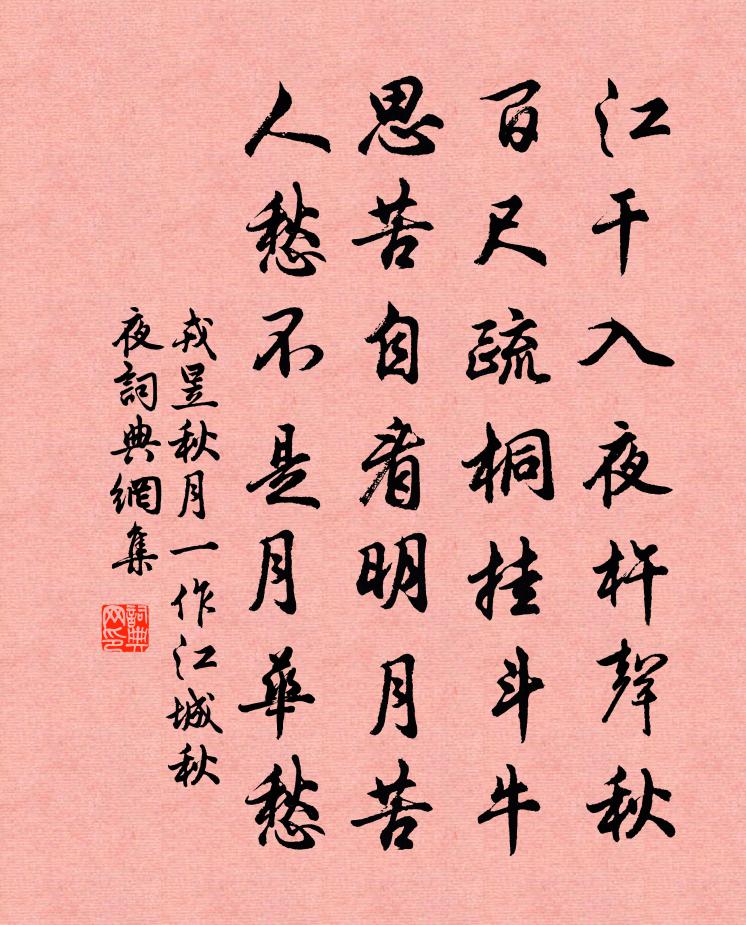 江干入夜杵聲秋
百尺疏桐挂斗牛
思苦自看明月苦
人愁不是月華愁
戎昱秋月一作江城秋
夜詞典網集
詞典
网印